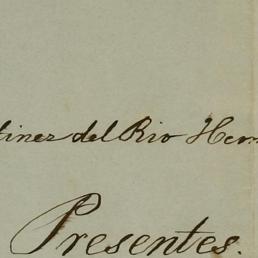 tinez del Rio Herm
Presentes.